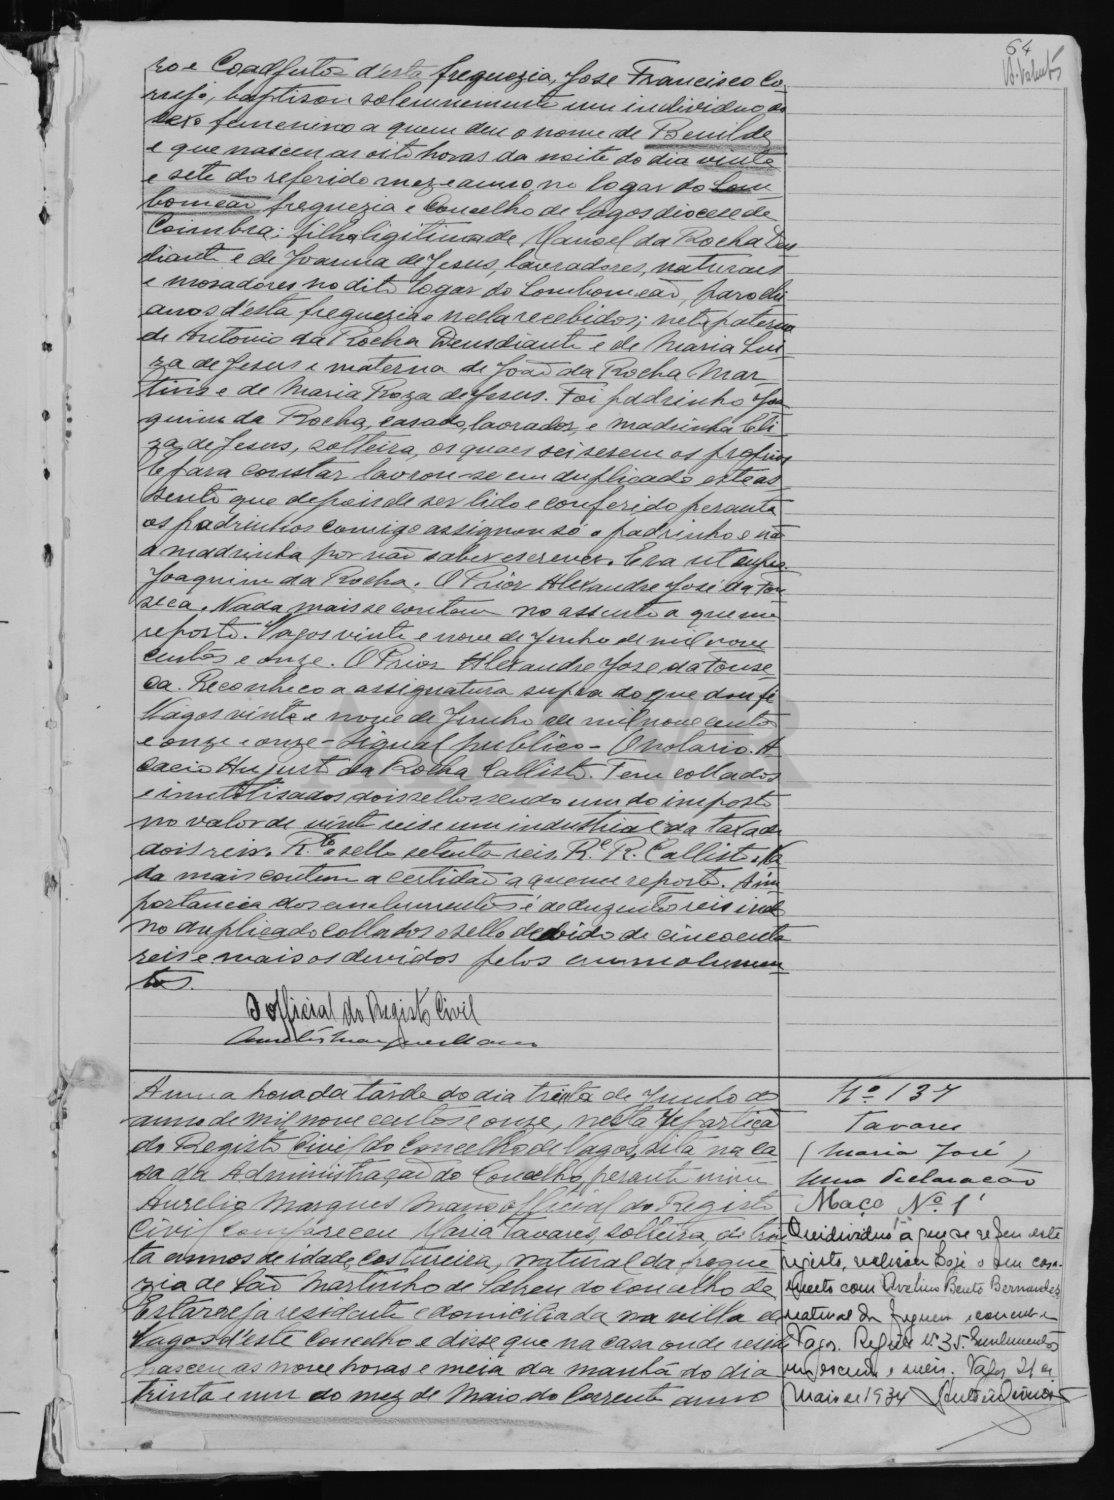 64
ro e Coadjutor d'esta freguezia, Jose Francisco Co-
rujo, baptisou solemnemente um individuo do
sexo femenino a quem deu o nome de Benilde
e que nasceu as oito horas da noite do dia vinte
e sete do referido mez e anno, no logar do Lom
bomeão freguezia e Concelho de Vagos diocese de
Coimbra; filha ligitima de Manoel da Rocha Deus
diante e de Joanna de Jesus, lavradores, naturaes
e moradores no dito logar do Lombomeão, parochi
anos d'esta freguezia e nella recebidos; neta paterna
de Antonio da Rocha Deusdiante e de Maria Lui-
za de Jesus e materna de João da Rocha Mar-
tins e de Maria Roza de Jesus. Foi padrinho Joa
quim da Rocha, casado, lavrador, e madrinha Eli
za de Jesus, solteira, os quaes sei serem os proprios
E para constar lavrou-se em duplicado este as-
sento que depois de ser lido e conferido perante
os padrinhos comigo assignou só o padrinho e não
a madrinha por não saber escrever. Era ut supra.
Joaquim da Rocha. O Prior Alexandre José da Fon
seca. Nada mais se contem no assento a que me
reporto. Vagos vinte e nove de Junho de mil nove
centos e onze. O Prior Alexandre Jose da Fonse-
ca. Reconheço a assignatura supra do que dou fé
Vagos vinte e nove de Junho de mil nove centos
e onze e onze - Signal publico - O notario. A
cacio Augusto da Rocha Callisto. Tem collados
e inutilisados dois sellos sendo um do imposto
no valor de vinte reis e um industrial da taxa de
dois reis. R.to e sello setenta reis. R.e R. Callisto. Na
da mais contem a certidão a que me reporto. A im
portancia dos emolumentos é de duzentos reis indo
no duplicado collados o sello devido de cincoenta
reis e mais os devidos pelos emmolumen
tos.
O official do Registo Civil
A uma hora da tarde do dia trinta de Junho do
anno de mil nove centos e onze, nesta repartição
do Registo Civil do Concelho de Vagos, sita na ca-
sa da Administração do Concelho, perante mim
Aurelio Marques Mano official do Registo
Civil compareceu Maria Tavares, solteira, de trin
ta annos de idade, costureira, natural da fregue
zia de São Martinho de Salreu do concelho de
Estarreja residente e domiciliada na villa de
Vagos d'este Concelho e disse que na casa onde reside
nasceu as nove horas e meia da manhã do dia
trinta e um do mez de Maio do corrente anno
Nº 137
Tavares
(Maria José)
Uma declaração
Maço Nº 1
O individuo a que se refere este
registo, realisou hoje o seu casa-
mento com Avelino Bento Bernardes
natural da freguesia e concelho de
Vagos. Registo nº 35. Emolumentos
um escudo e meio. Vagos 21 de
Maio de 1934
ADAVR